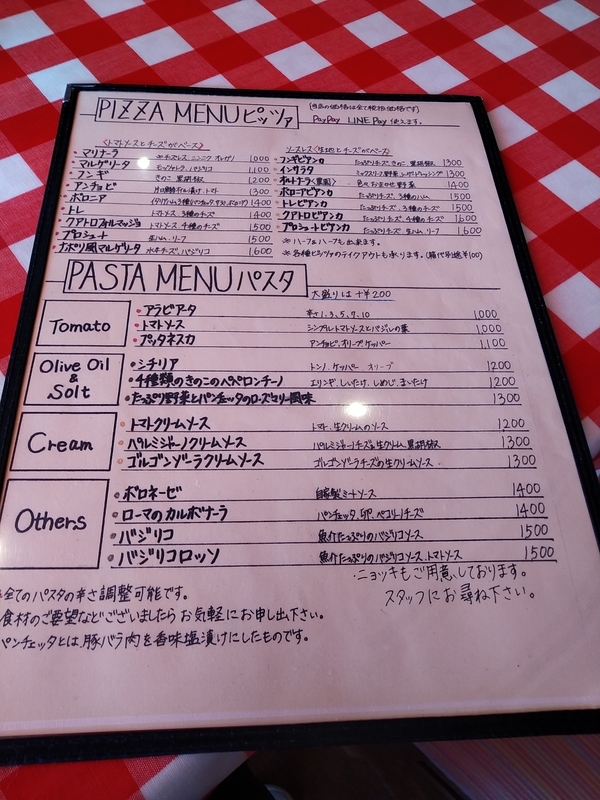 PIZZA MENU ピッツァ
(当店の価格は全て税抜価格です)
PayPay LINE Pay 使えます。
<トマトソースとチーズがベース>
マリナーラ ※チーズレス、ニンニク オレガノ 1000
マルゲリータ モッツァレラ、バジリコ 1,100
フンギ きのこ 黒胡椒 1200
アンチョビ 片口鰯のオイル漬け トマト 1300
ボロニア 1400
トレ トマトソース、3種のチーズ 1400
クアトロフォルマッジョ トマトソース、4種のチーズ 1500
プロシュート 生ハム、リーフ 1500
ナポリ風マルゲリータ 水牛チーズ、バジリコ 1,600
ソースレス<生地とチーズがベース>
フンギビアンカ たっぷりチーズ、きのこ、黒胡椒 1300
インサラタ ミックスリーフ野菜、シーザードレッシング 1300
オルトナーラ<農園> 色々おまかせ野菜 1400
ボロニアビアンカ たっぷりチーズ、3種のハム 1500
トレビアンカ たっぷりチーズ、3種のチーズ 1500
クアトロビアンカ たっぷりチーズ、4種のチーズ 1600
プロシュートビアンカ たっぷりチーズ、生ハム、リーフ 1600
※ハーフ&ハーフも出来ます。
※各種ピッツァのテイクアウトも承ります。(箱代別途¥100)
PASTA MENU パスタ
大盛りは +¥200
Tomato
・アラビアータ 辛さ1、3、5、7、10 1,000
・トマトソース シンプルトマトソースとバジルの葉 1,000
・プッタネスカ アンチョビ、オリーブ、ケッパー 1,100
Olive Oil & Solt
・シチリア トンノ、ケッパー オリーブ 1200
・4種類のきのこのペペロンチーノ エリンギ、しいたけ、しめじ、まいたけ 1200
・たっぷり野菜とパンチェッタのローズマリー風味 1300
Cream
・トマトクリームソース トマト、生クリームのソース 1200
・パルミジャーノクリームソース パルミジャーノチーズ&生クリーム、黒胡椒 1300
・ゴルゴンゾーラクリームソース ゴルゴンゾーラチーズの生クリームソース 1300
Others
・ボロネーゼ 自家製ミートソース 1400
・ローマのカルボナーラ パンチェッタ、卵、ペコリーノチーズ 1400
・バジリコ 魚介たっぷりのバジリコソース 1500
・バジリコロッソ 魚介たっぷりのバジリコソース、トマトソース 1500
・ニョッキもご用意しております。
スタッフにお尋ね下さい。
全てのパスタの辛さ調整可能です。
食材のご要望などございましたら お気軽にお申し出下さい。
パンチェッタとは、豚バラ肉を香味塩漬けにしたものです。